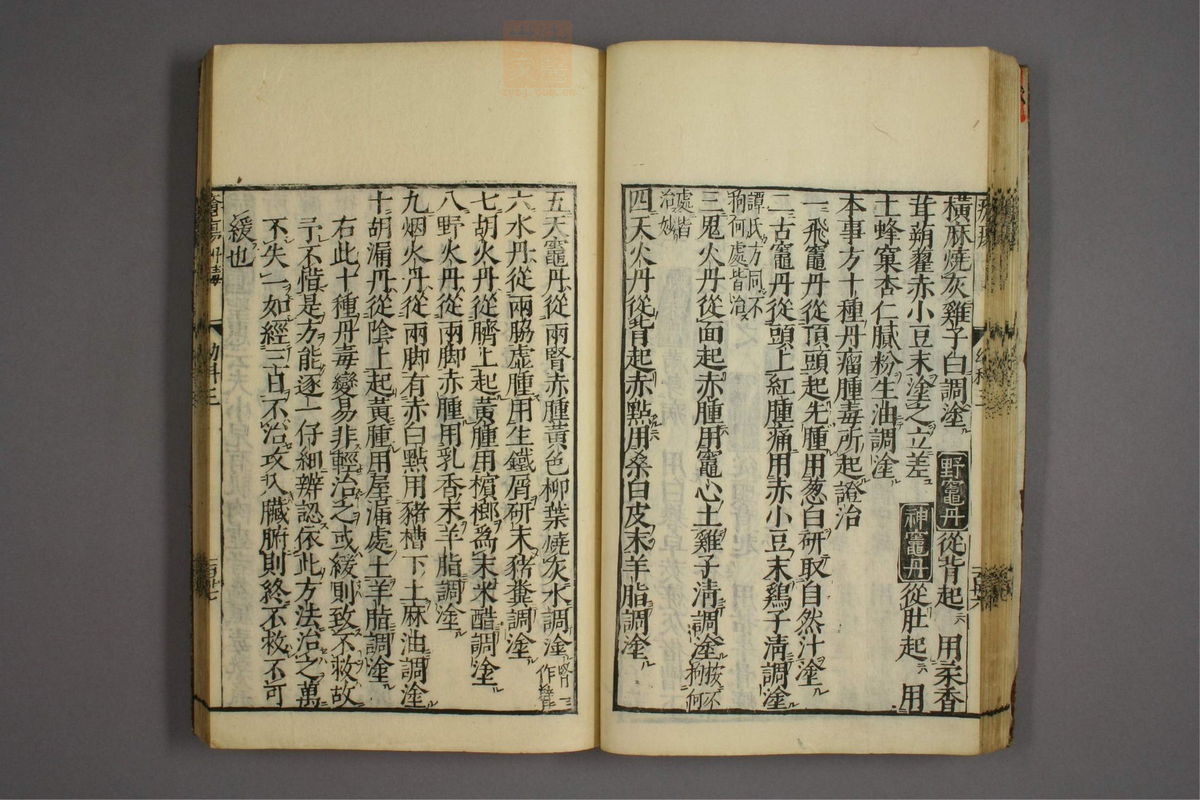 橫麻燒灰雞子白調塗 野竈丹 從背起 用柔香
茸朔藋赤小豆末塗之立差 神竈丹 從肚起 用
土蜂窠杏仁膩粉生油調塗
本事方十種丹瘤腫毒所起證治
一飛竈丹從頂頭起先腫用葱白研取自然汁塗
二古竈丹從頭上紅腫痛用赤小豆末鷄子淸調塗
譚氏方同不
狗何處皆治
三鬼火丹從面起赤腫用竈心土雞子淸調塗 按不
狗何
處皆
治妙
四天火丹從背起赤點用桑白皮末羊脂調塗
五天竈丹從兩腎赤腫黃色柳葉燒灰水調塗 腎一
作臂
六水丹從兩脇虛腫用生鐵屑研末猪糞調塗
七胡火丹從臍上起黃腫用檳榔爲末米醋調塗
八野火丹從兩脚赤腫用乳香末羊脂調塗
九烟火丹從兩脚有赤白點用猪槽下土麻油調塗
十胡漏丹從陰上起黃腫用屋漏處土羊脂調塗
右此十種丹毒變易非輕治之或緩則致不救故
予不惜是方能逐一仔細辨認依此方法治之萬
不失一如經三日不治攻入臟腑則終不救不可
緩也
幼科三